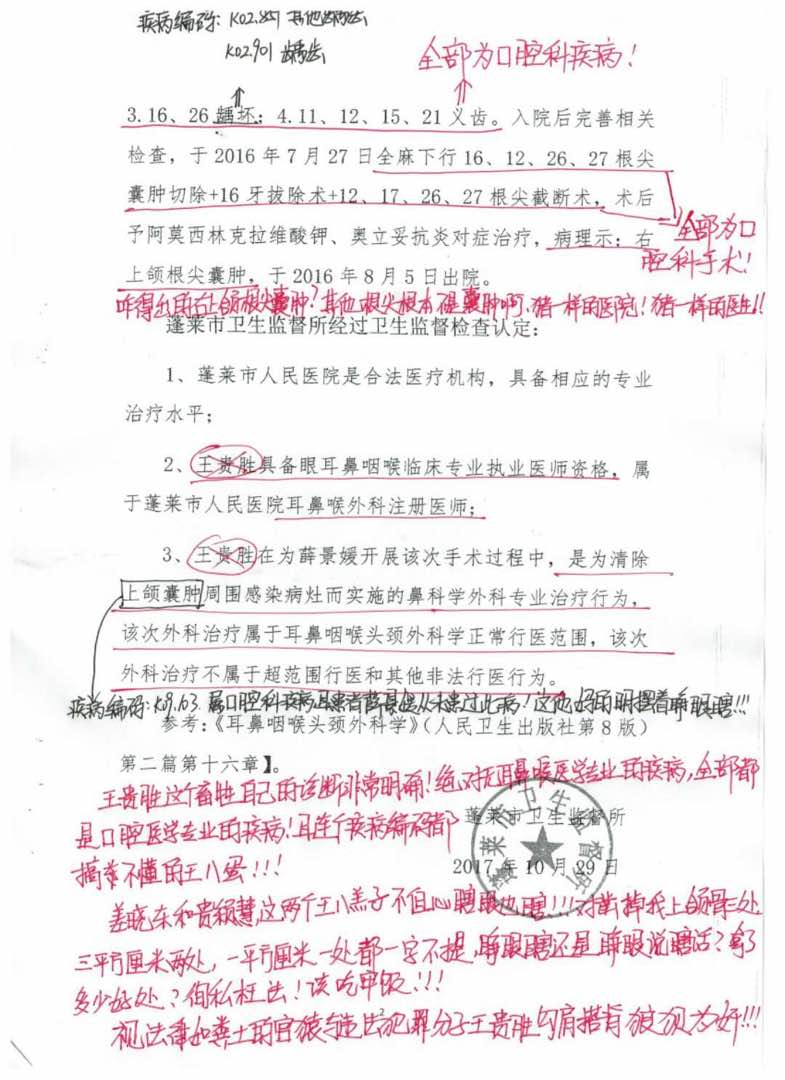 疾病编码：K02.851 其他龋齿
K02.901 龋齿
全部为口腔科疾病！
3.16、26 龋坏；4.11、12、15、21 义齿。入院后完善相关
检查，于 2016 年 7 月 27 日全麻下行 16、12、26、27 根尖
囊肿切除+16 牙拔除术+12、17、26、27 根尖截断术，术后
予阿莫西林克拉维酸钾、奥立妥抗炎对症治疗，病理示：右
全部为口
腔科手术！
上颌根尖囊肿，于 2016 年 8 月 5 日出院。
咋得出的右上颌根尖囊肿？其他根尖根本不是囊肿啊，猪一样的医院！猪一样的医生！！
蓬莱市卫生监督所经过卫生监督检查认定：
1、蓬莱市人民医院是合法医疗机构，具备相应的专业
治疗水平；
2、王贵胜具备眼耳鼻咽喉临床专业执业医师资格，属
于蓬莱市人民医院耳鼻喉外科注册医师；
3、王贵胜在为薛景媛开展该次手术过程中，是为清除
上颌囊肿周围感染病灶而实施的鼻科学外科专业治疗行为，
该次外科治疗属于耳鼻咽喉头颈外科学正常行医范围，该次
外科治疗不属于超范围行医和其他非法行医行为。
疾病编码：K09.163 属口腔科疾病且患者薛景媛从未患过此病！这他妈的明摆着睁眼瞎！！！
参考：《耳鼻咽喉头颈外科学》（人民卫生出版社第 8 版）
第二篇第十六章】。
王贵胜这个畜牲自己的诊断非常明确！绝对无耳鼻喉医学专业的疾病，全部都
是口腔医学专业的疾病！耳连个疾病编码都
搞弄不懂的王八蛋！！！
蓬莱市卫生监督所
蓬莱市卫生监督所
2017 年 10 月 29 日
姜晓东和贵颖慧这两个王八羔子不但心瞎眼也瞎！！！对凿掉我上颌骨三处
三平方厘米两处，一平方厘米一处都一字不提，睁眼瞎还是睁眼说瞎话？拿了
多少好处？徇私枉法！该吃甲级！！！
2
视法律如粪土的官猿与违法犯罪分子王贵胜勾肩搭背狼狈为奸！！！